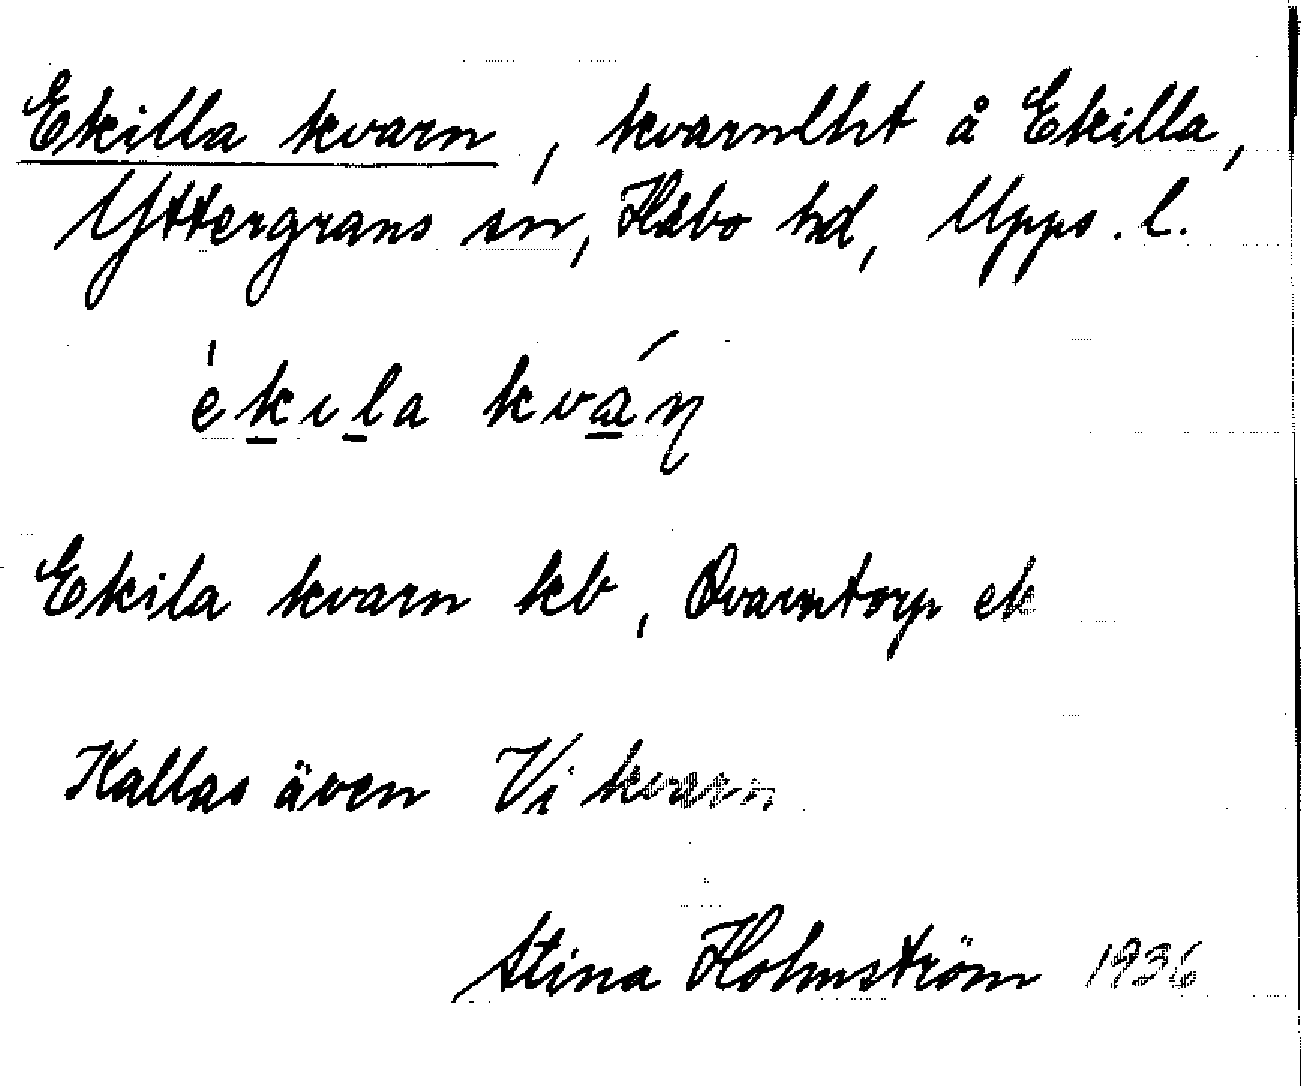 Ekilla kvarn, kvarnlht å Ekilla,
Yttergrans sn, Håbo hd, Upps. l.
ékila kván
Ekila kvarn kb, Qvarntorp ek
Kallas även Vi kvarn
Stina Holmström 1936